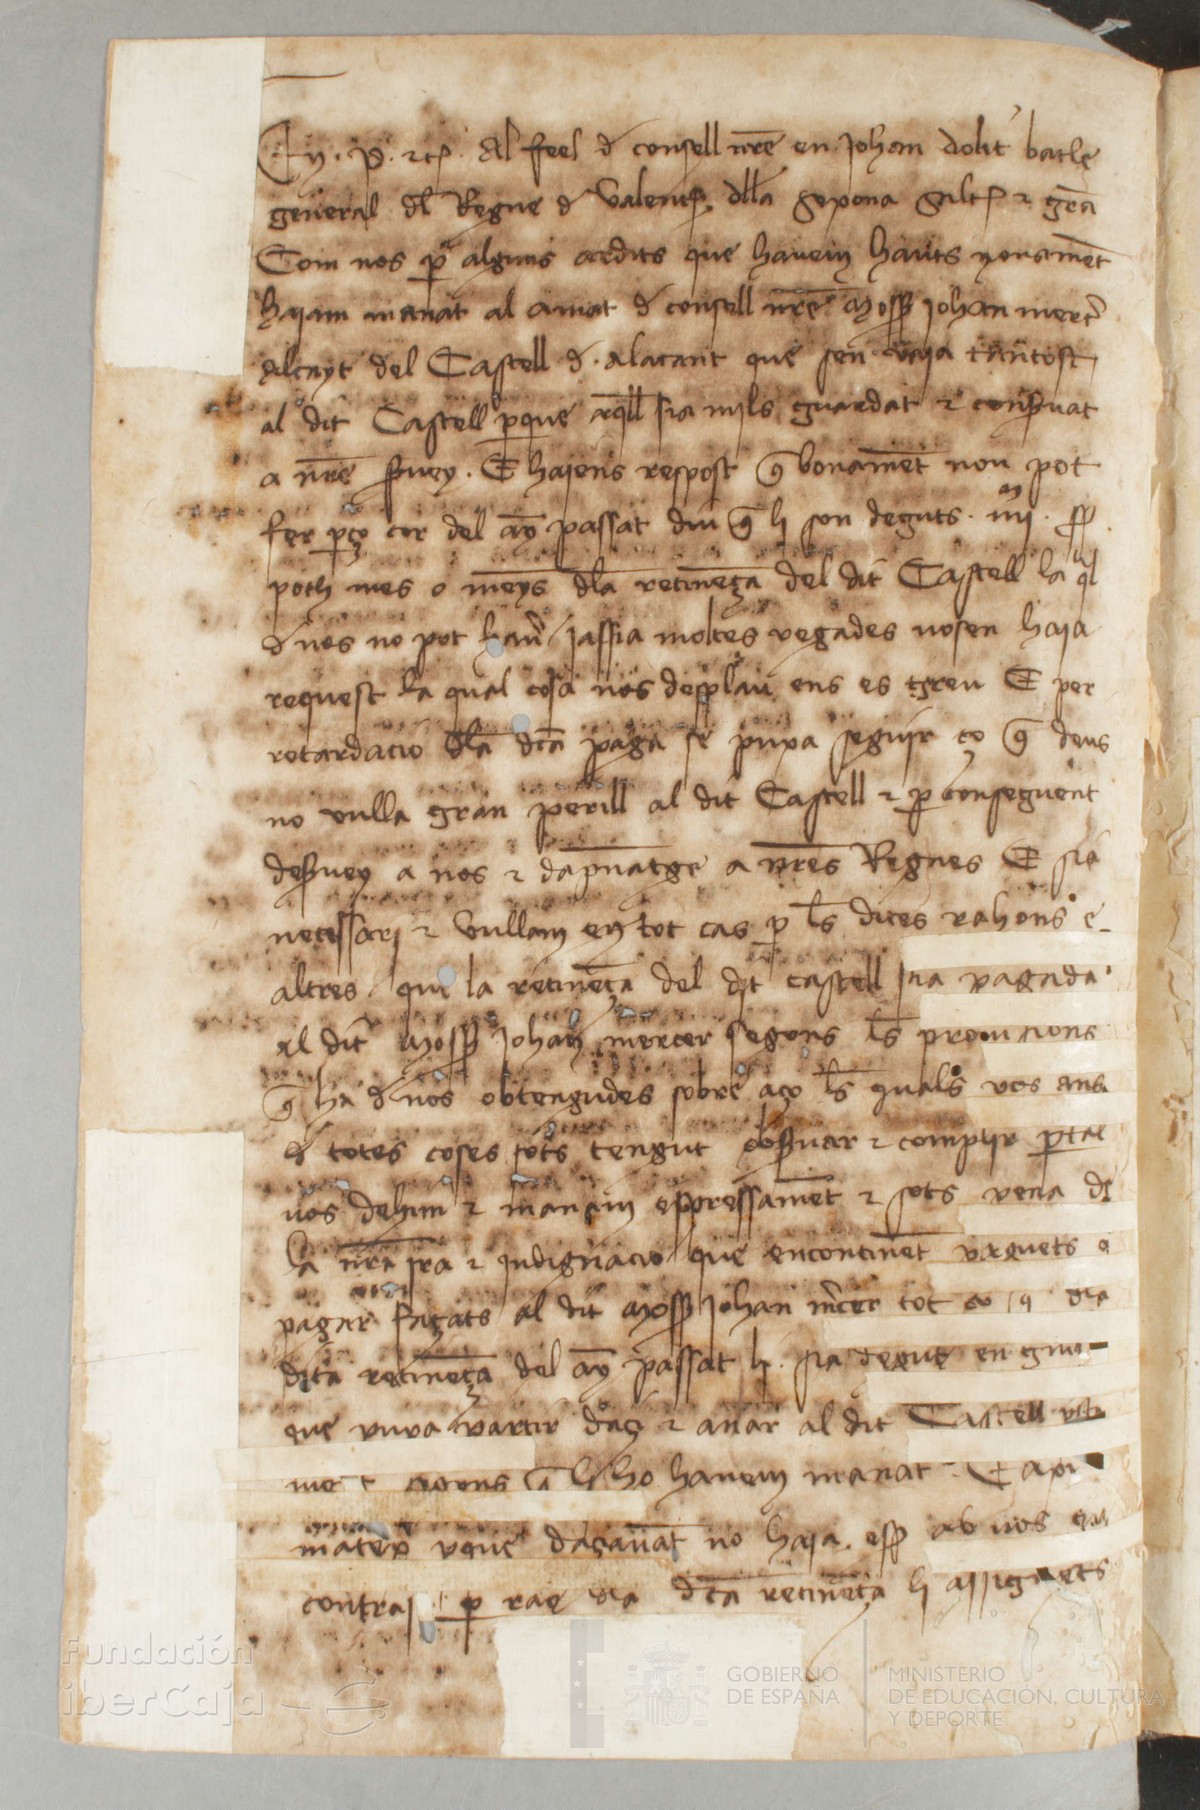 En .P. etc. Al feel d consell nre en Johan dolit batle
general dl Regne d Valencia dlla Sexona Salut e gra
Com nos p alguns ardits que havem hauts novament
haiam manat al amat d consell nre mossen Johan mercer
Alcayt del Castell d. alacant que sen vaja tantost
al dit Castell pque aqll sia mils guardat e conservat
a nre servey. E haiens respost q bonament non pot
fer pço cor del any passat diu q li son deguts .IIII. m ss
poch mes o meys dla retinença del dit Castell la ql
d nos no pot haver jassia moltes vegades nosen haja
request la qual cosa nos desplau ens es greu E per
retardacio dla dita paga se puxa seguir ço q deus
no vulla gran perill al dit Castell e p conseguent
deservey a nos e dapnatge a nres Regnes E sia
necessari e vullam en tot cas p les dites rahons e
altres que la retinença del dit castell sia pagada
Al dit mossen Johan mercer segons les provisions
q ha d nos obtengudes sobre aço les quals vos ans
d totes coses sots tengut observar e complir ptal
vos dehim e manam expressament e sots pena d
la nra ira e indignacio que encontinent paguets o
pagar façats al dit mossen Johan mercer tot ço q dla
dita retinença del any passat li sia degut en gui
que puxa partir daçi e anar al dit Castell
me t segons q li ho havem manat. E axi
matex que daçavant no haja ab vos
contrast p rao dla dita retinença li assignets
Fundación
iberCaja
GOBIERNO
DE ESPAÑA
MINISTERIO
DE EDUCACIÓN, CULTURA
Y DEPORTE